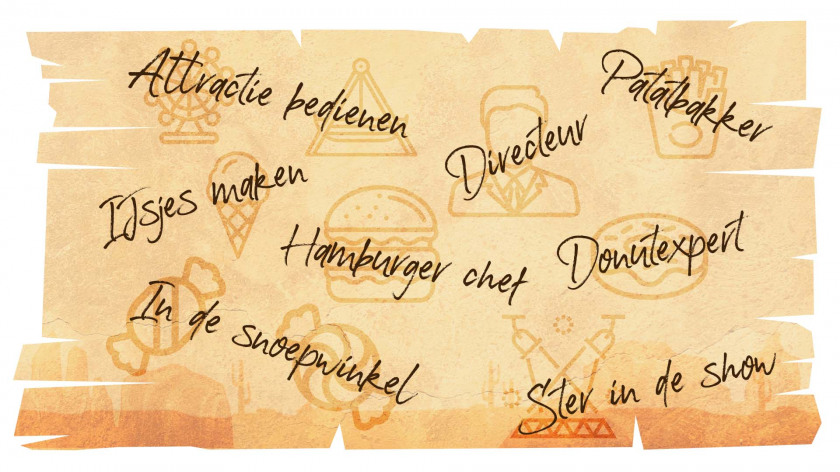 Attractie bedienen
Patatbakker
Directeur
IJsjes maken
Hamburger chef
Donutexpert
In de snoepwinkel
Ster in de show